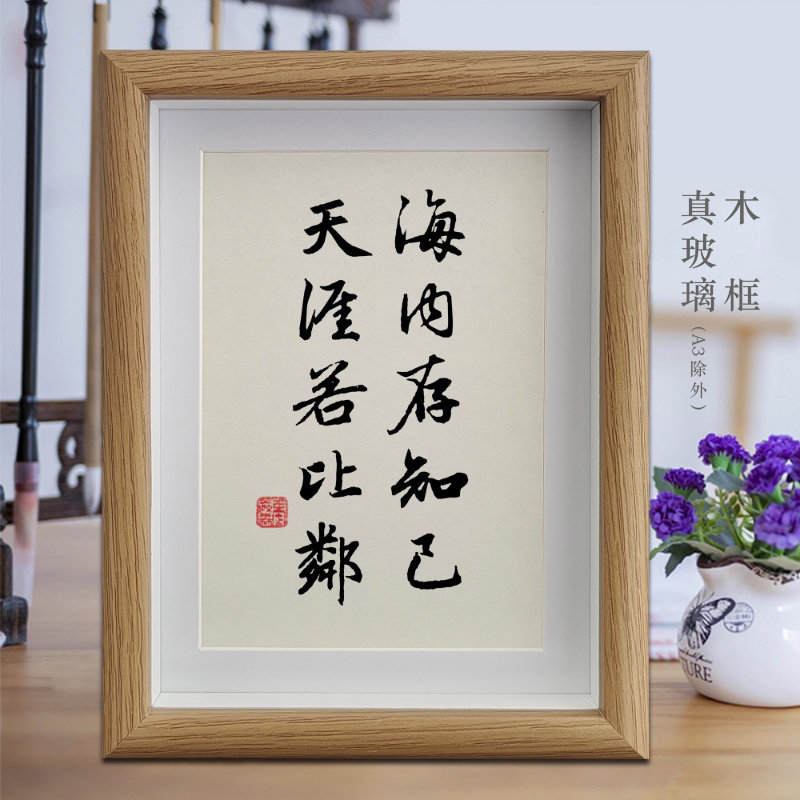 海内存知己
天涯若比鄰
木框
真玻璃(A3除外)
TURE